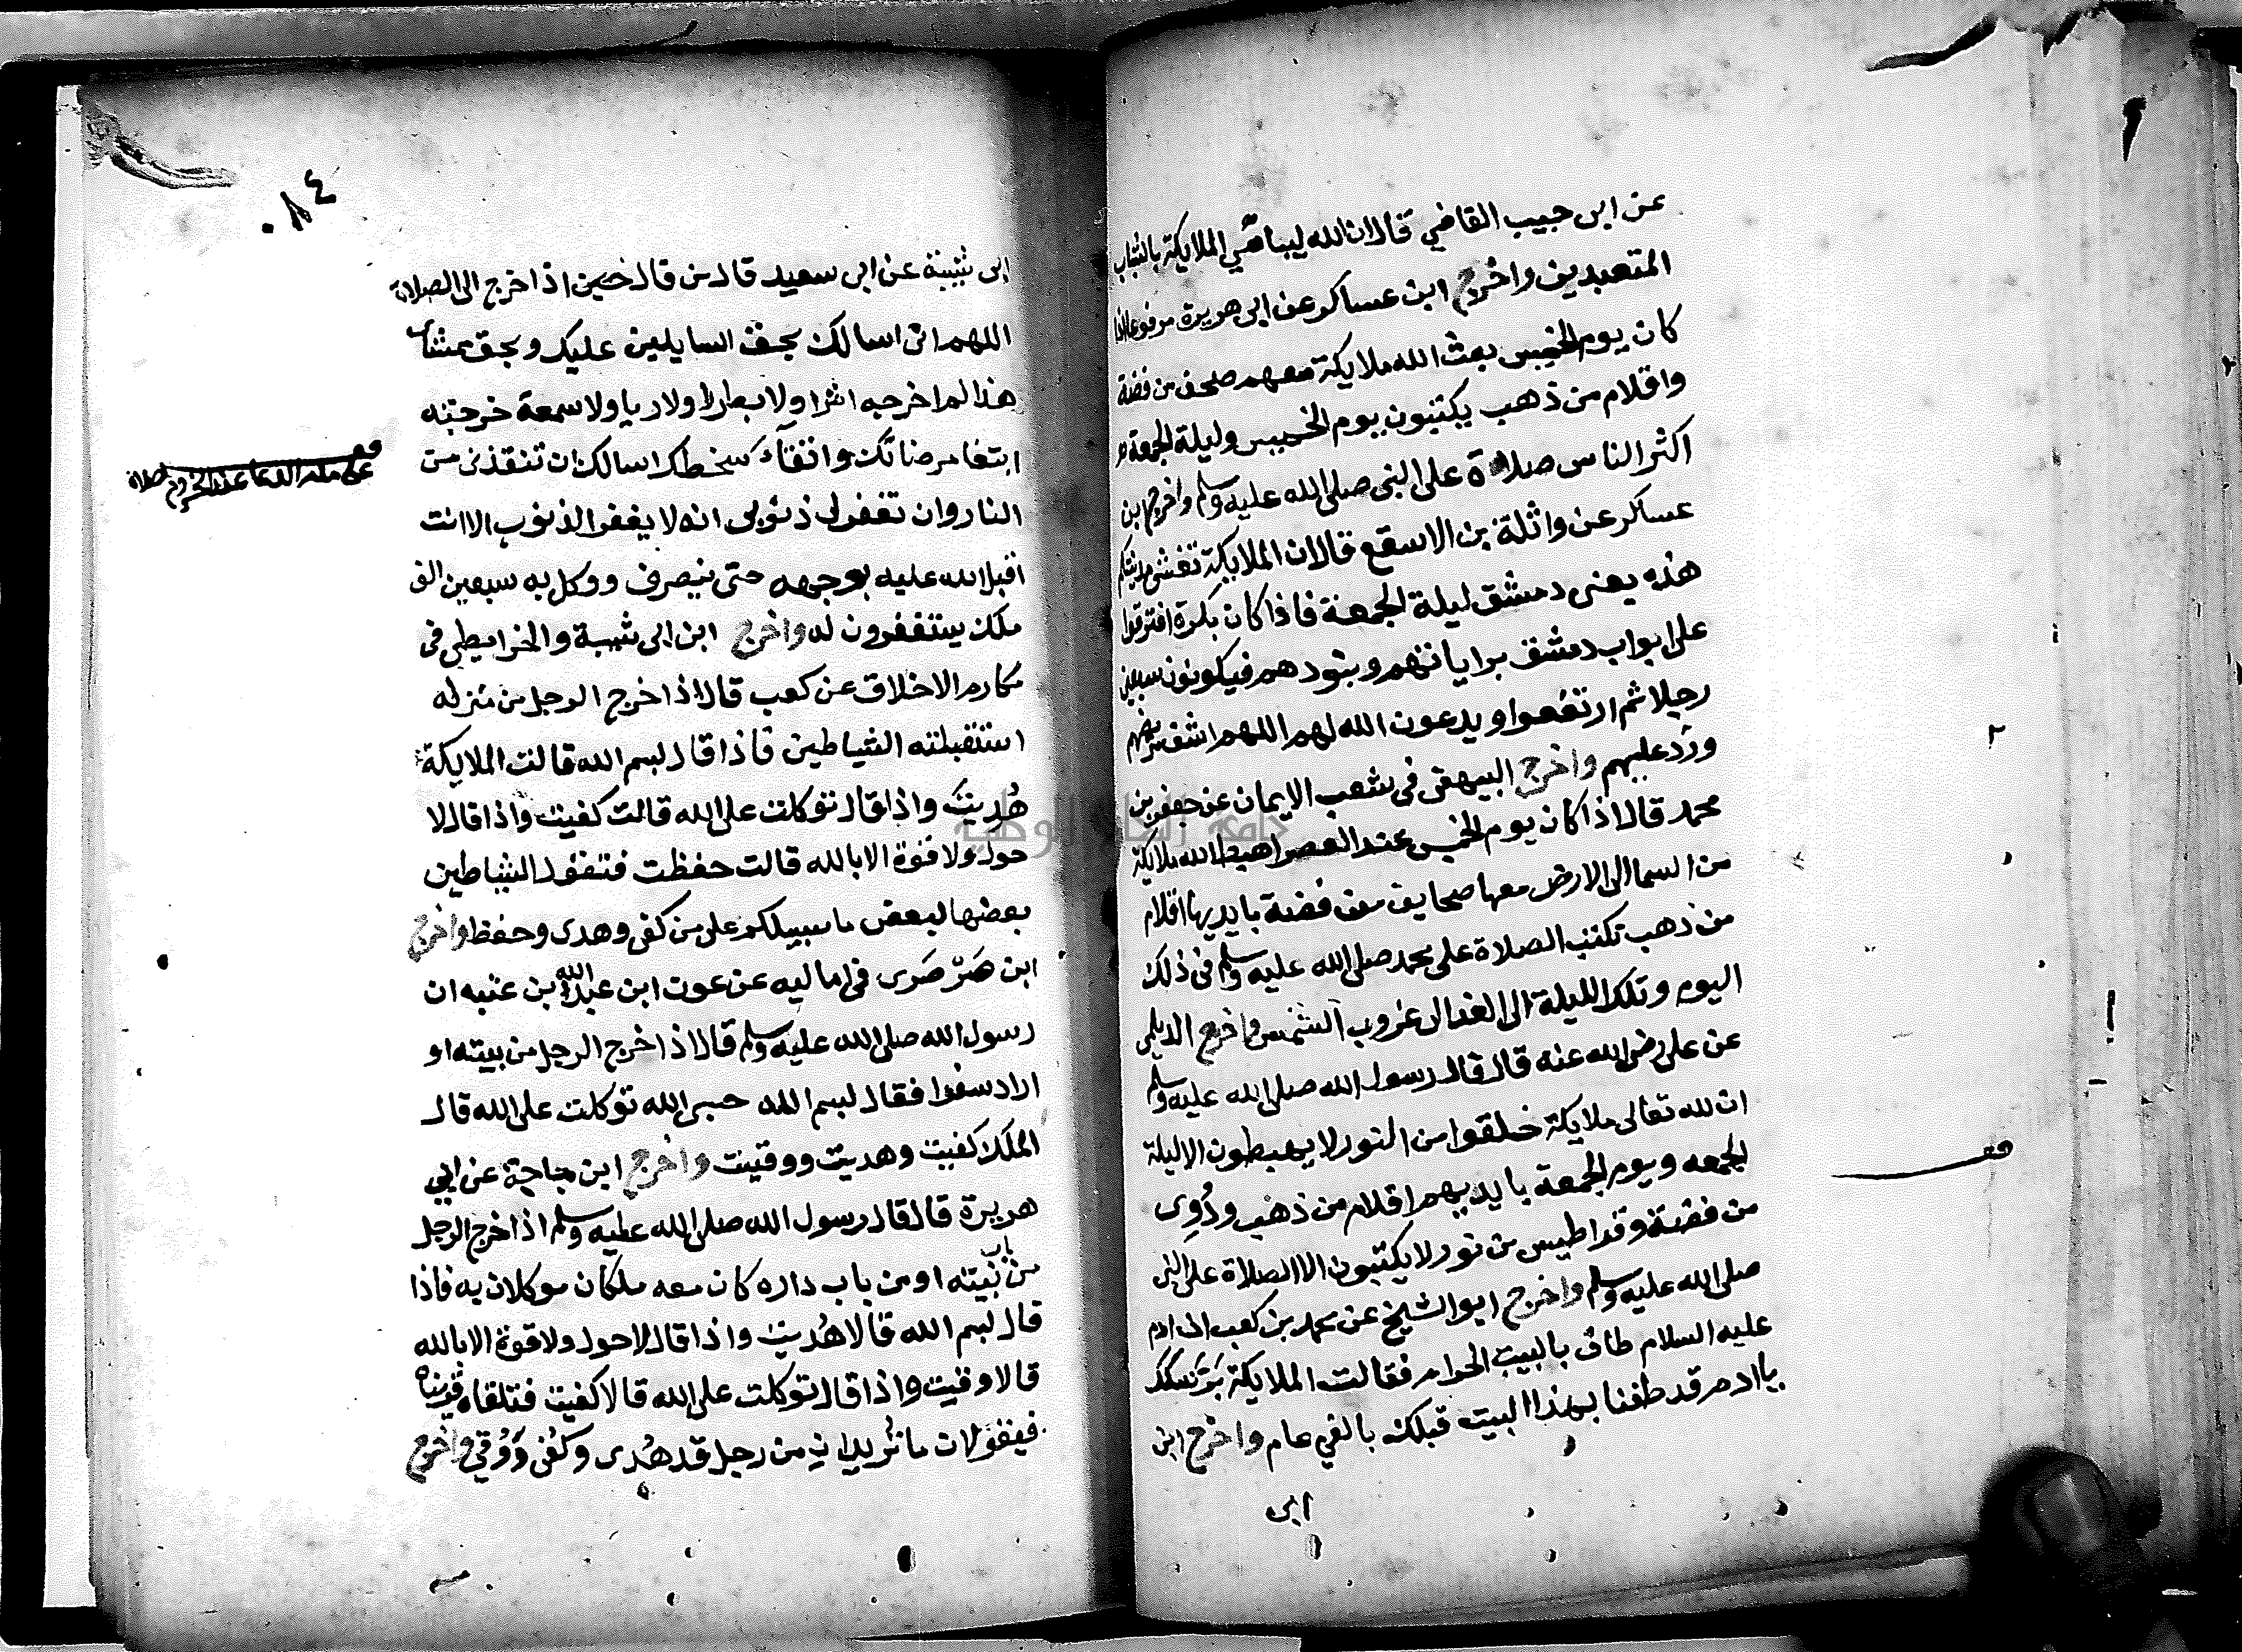 عن ابن حبيب القاضي قال ان الله ليباهي الملايكة بالشباب
المتعبدين واخرج ابن عساكر عن ابي هريرة مرفوعا اذا
كان يوم الخميس بعث الله ملايكة معهم صحف من فضة
واقلام من ذهب يكتبون يوم الخميس وليلة الجمعة
اكثر الناس صلاة على النبي صلى الله عليه وسلم واخرج ابن
عساكر عن واثلة بن الاسقع قال ان الملايكة تغشى مدينتكم
هذه يعني دمشق ليلة الجمعة فاذا كان بكرة افترقوا
على ابواب دمشق براياتهم وبنودهم فيكونون سبعين
رجلا ثم ارتفعوا ويدعون الله لهم اللهم اشف مريضهم
ورد عليهم واخرج البيهقي في شعب الايمان عن جعفر بن
محمد قال اذا كان يوم الخميس عند العصر اهبط الله ملايكة
من السما الى الارض معها صحايف من فضة بايديها اقلام
من ذهب تكتب الصلاة على محمد صلى الله عليه وسلم في ذلك
اليوم وتلك الليلة الى الغد الى غروب الشمس واخرج الديلمي
عن علي رضي الله عنه قال قال رسول الله صلى الله عليه وسلم
ان لله تعالى ملايكة خلقوا من النور لا يهبطون الا ليلة
الجمعه ويوم الجمعة بايديهم اقلام من ذهب ودُوِى
من فضة وقراطيس من نور لا يكتبون الا الصلاة على النبي
صلى الله عليه وسلم واخرج ابو الشيخ عن محمد بن كعب ان ادم
عليه السلام طاف بالبيت الحرام فقالت الملايكة بَرّ نسكك
يا ادم قد طفنا بهذا البيت قبلك بالفي عام واخرج ابن
ابى
٢
قف
٠٨٤
ابى شيبة عن ابى سعيد قال من قال حين اذا خرج الى الصلاة
اللهم اني اسالك بحق السايلين عليك وبحق ممشاى
هذا لم اخرجه اشرا ولا بطرا ولا ريا ولا سمعة خرجته
ابتغا مرضاتك واتقآء سخطك اسالك ان تنقذني من
النار وان تغفر لى ذنوبى انه لا يغفر الذنوب الا انت
اقبل الله عليه بوجهه حتى ينصرف ووكل به سبعين الف
ملك يستغفرون له واخرج ابن ابى شيبة والخرايطي فى
مكارم الاخلاق عن كعب قال اذا خرج الرجل من منزله
استقبلته الشياطين فاذا قال بسم الله قالت الملايكة
هُديت واذا قال توكلت على الله قالت كفيت واذا قال لا
حول ولا قوة الا بالله قالت حفظت فتقول الشياطين
بعضها لبعض ما سبيلكم على من كفى وهدى وحفظ واخرج
ابن صَرْصَرى فى اماليه عن عون ابن عبد الله بن عتبه ان
رسول الله صلى الله عليه وسلم قال اذا خرج الرجل من بيته او
اراد سفرا فقال بسم الله حسبى الله توكلت على الله قال
الملك كفيت وهديت ووقيت واخرج ابن ماجة عن ابي
هريرة قال قال رسول الله صلى الله عليه وسلم اذا خرج الرجل
من باب بيته او من باب داره كان معه ملكان موكلان به فاذا
قال بسم الله قالا هُديت واذا قال لا حول ولا قوة الا بالله
قالا وقيت واذا قال توكلت على الله قالا كفيت فتلقاه قريناه
فيقولان ما تُريدان من رجل قد هُدى وكُفى وَوُقي واخرج
قف
على هذا الدعا عند الخروج للصلاة